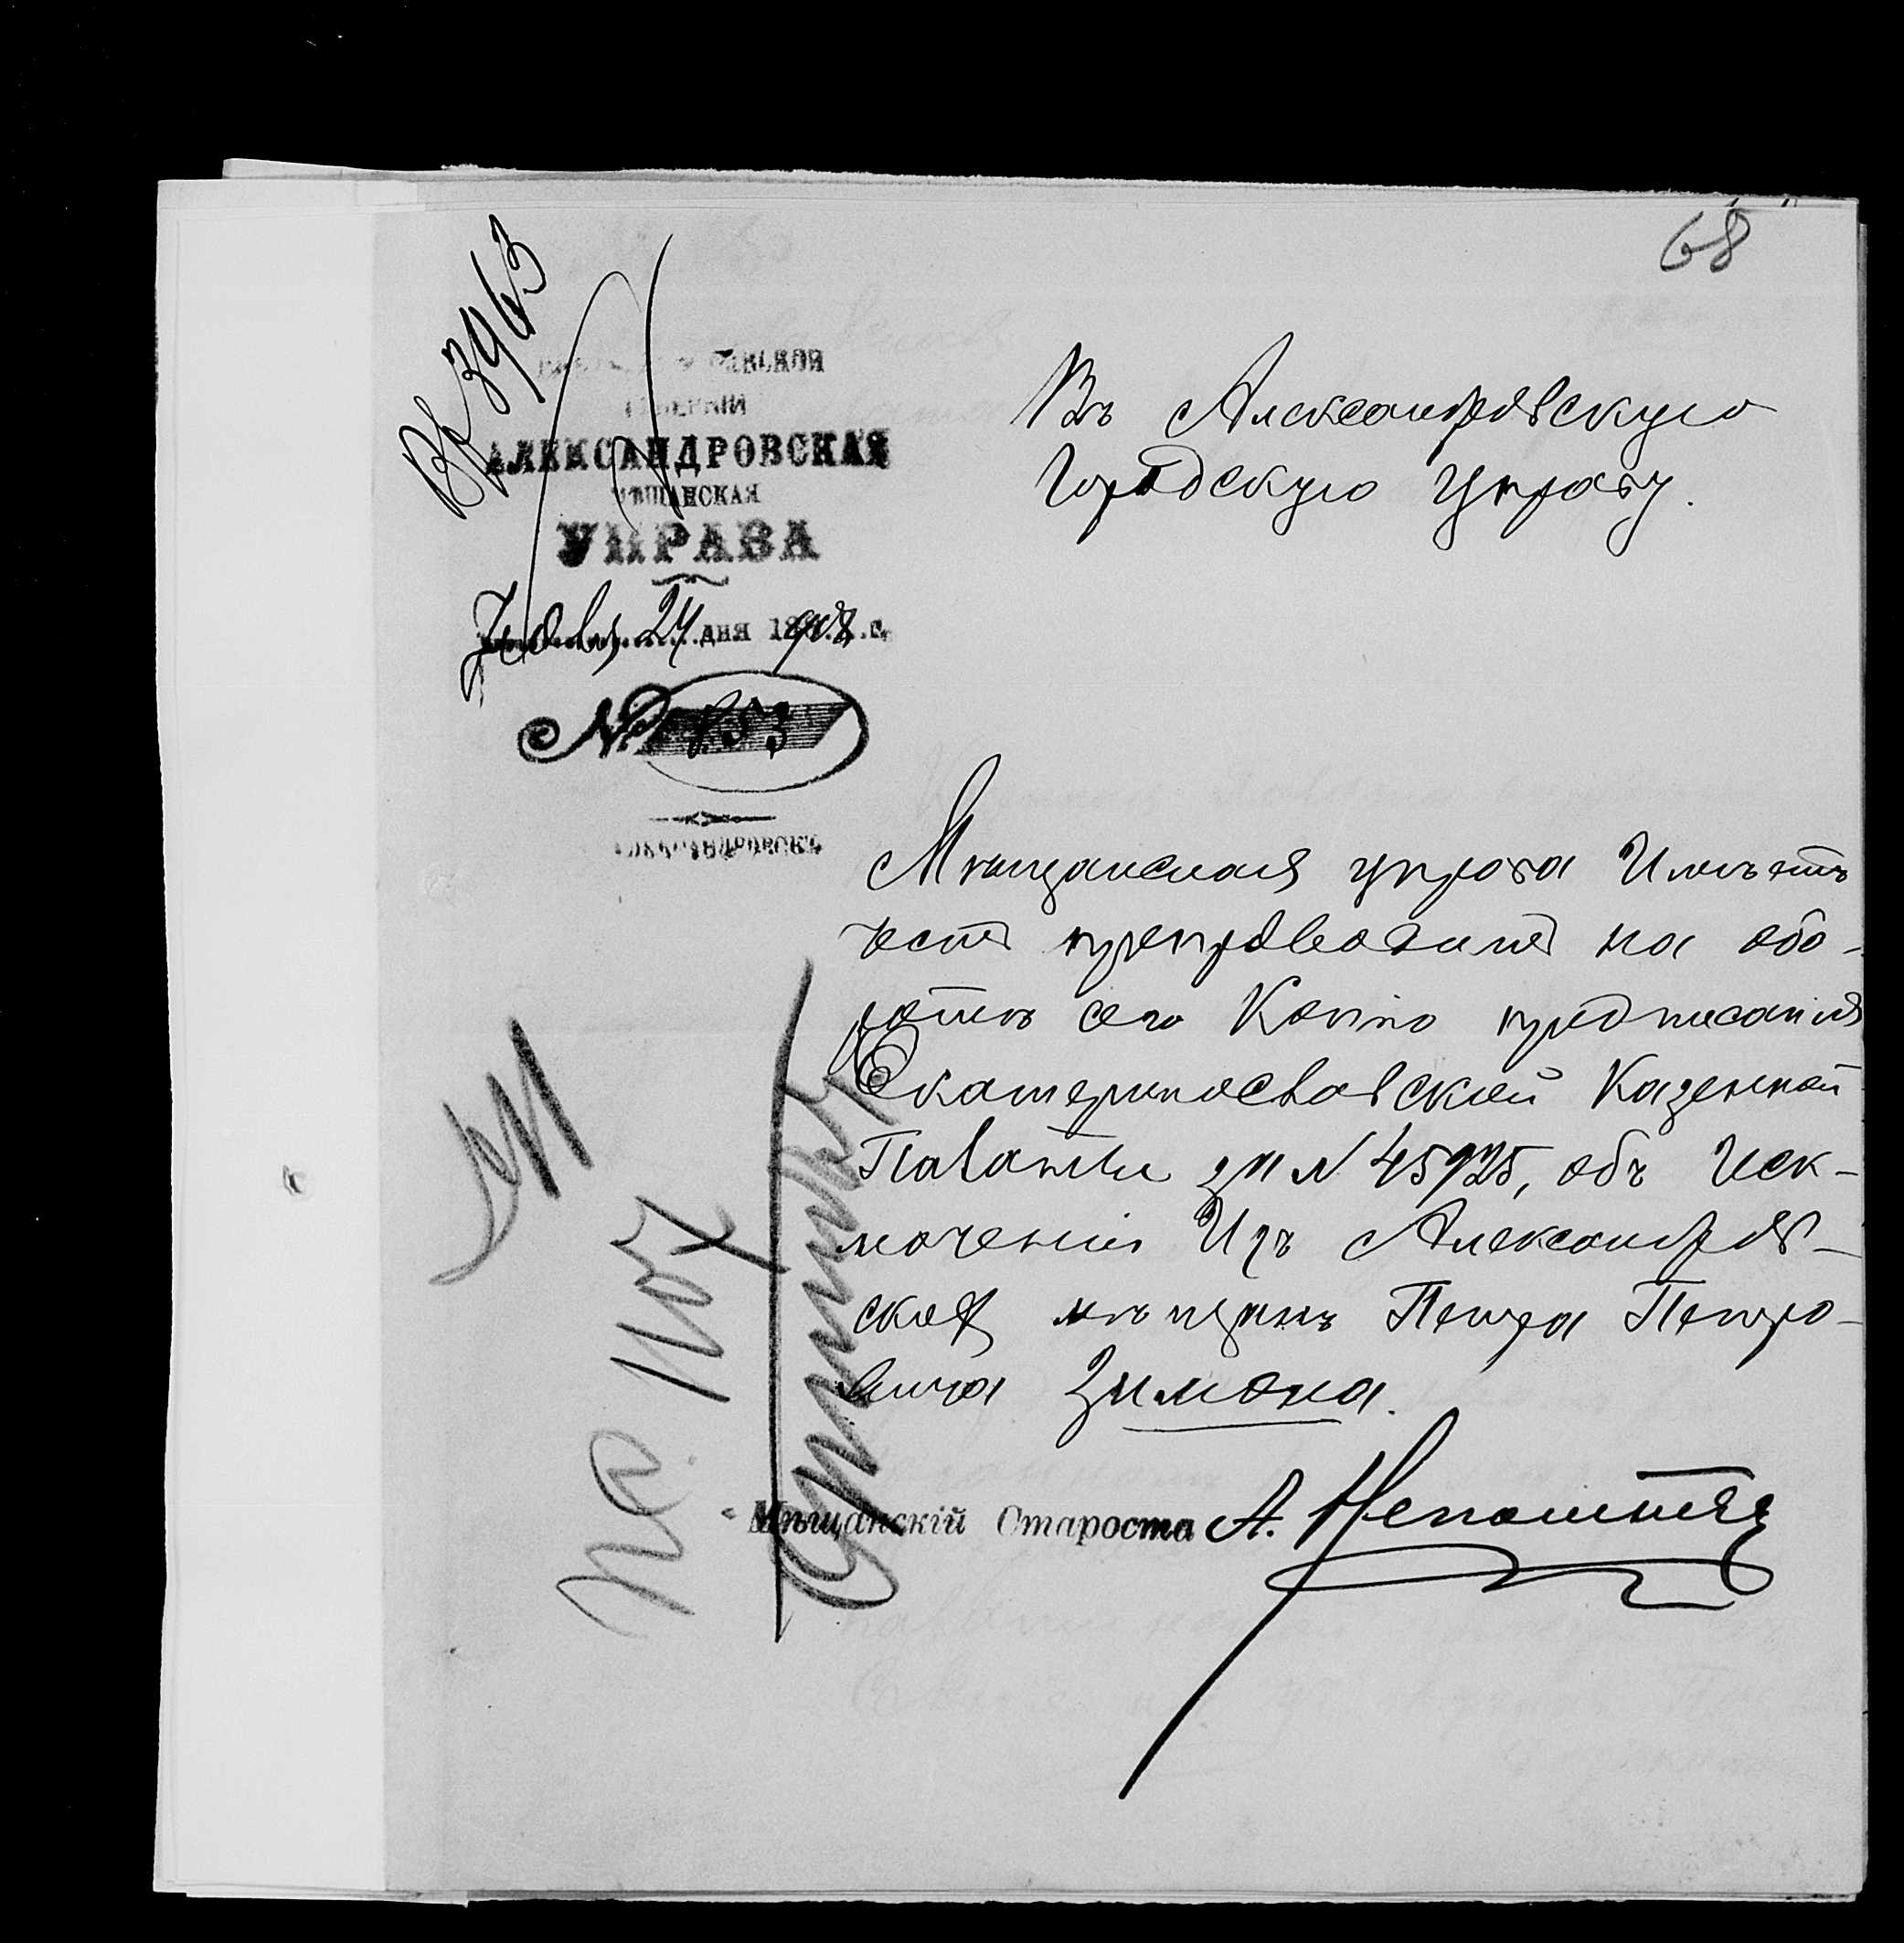 68
Вх 3963
ГУБЕРНІИ
АЛЕКСАНДРОВСКАЯ
МѢЩАНСКАЯ
УПРАВА
24 дня 1908 г.
№ 853
АЛЕКСАНДРОВСКЪ
Въ Александровскую
Городскую Управу.
Мѣщанская управа Имѣетъ
честь препроводить на обо-
ротѣ сего Копію предписанія
Екатеринославской Казенной
Палаты за № 45925, объ Иск-
люченіи Изъ Александров-
скихъ мѣщанъ Петра Петро-
вича Зимона.
Мѣщанскій Староста А.